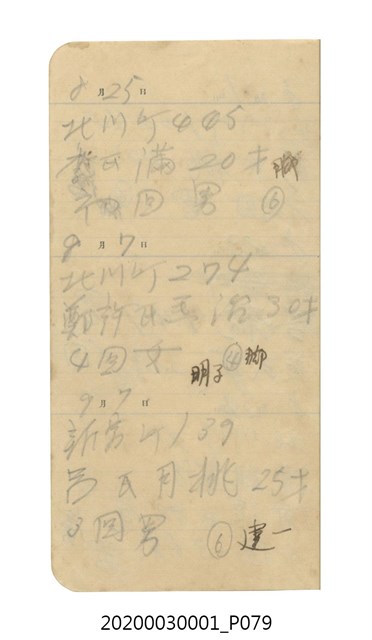 8月25日
北川丁445
氏满20才
回 男 ⑥
9月7日
北川丁274
鄭許氏玉 30才
4回女 ④ 鄭
明子
9月7日
新富丁139
呂氏月桃25才
3回男 ⑥ 建一
20200030001_P079